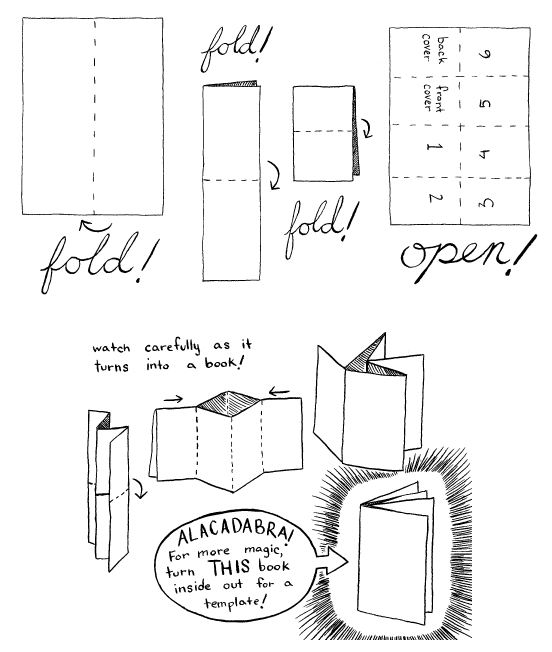 fold!
fold!
fold!
back
cover
front
cover
1
2
6
5
4
3
open!
watch carefully as it
turns into a book!
ALACADABRA!
For more magic,
turn THIS book
inside out for a
template!